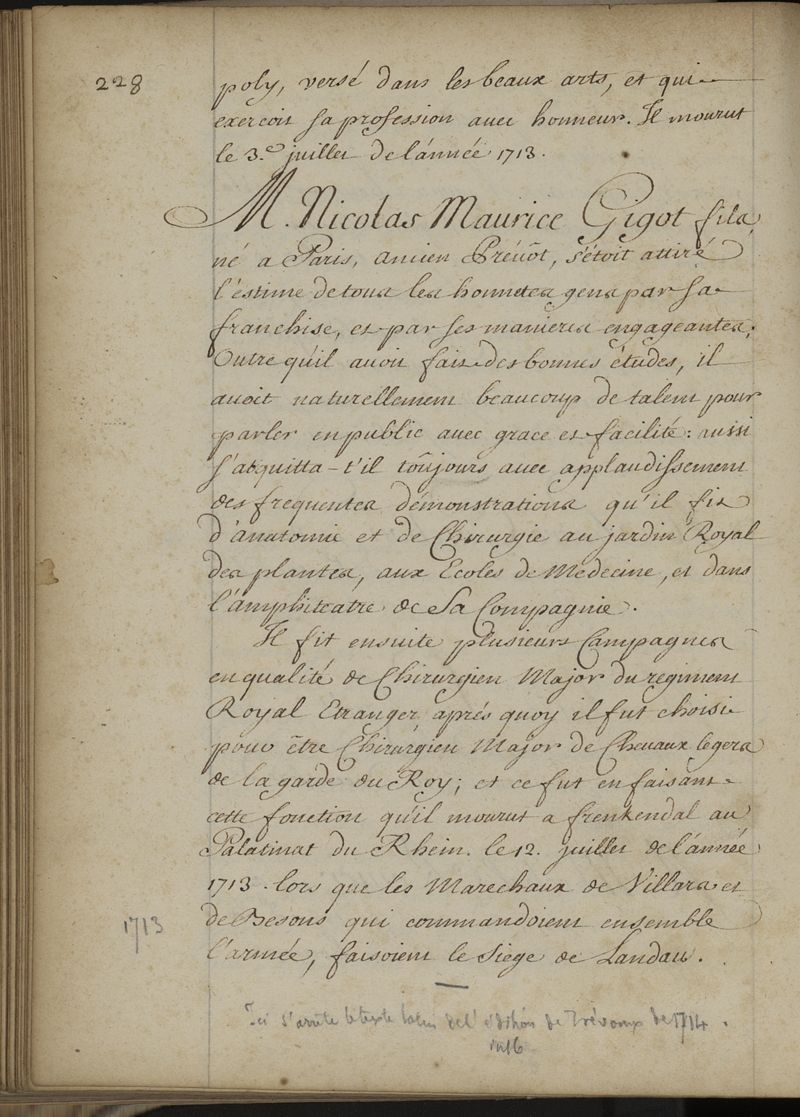 228
poly, versé dans les beaux arts, et qui
exercoit sa profession avec honneur. Il mourut
le 3.e juillet de l'année 1713.
M. Nicolas Maurice Gigot fils
né a Paris, ancien Prévôt, s'étoit attiré
l'estime de tous les honnetes gens par sa
franchise, et par ses manieres engageantes;
Outre qu'il avoit fait des bonnes études, il
avoit naturellement beaucoup de talent pour
parler en public avec grace et facilité: aussi
s'acquitta-t'il toûjours avec applaudissement
des frequentes démonstrations qu'il fit
d'anatomie et de Chirurgie au jardin Royal
des plantes, aux Ecoles de Medecine, et dans
l'amphiteatre de Sa Compagnie.
Il fit ensuite plusieurs Campagnes
en qualité de Chirurgien Major du regiment
Royal Etranger aprés quoy il fut choisi
pour être Chirurgien Major de Chevaux legers
de la garde du Roy; et ce fut en faisant
cette fonction qu'il mourut a frenkendal au
Palatinat du Rhein. le 12. juillet de l'année
1713. lors que les Marechaux de Villars et
1713
de Besons qui commandoient ensemble
l'armée, faisoient le Siege de Landau.
Ici s'arrête le texte latin de l'édition de Trévoux de 1714.